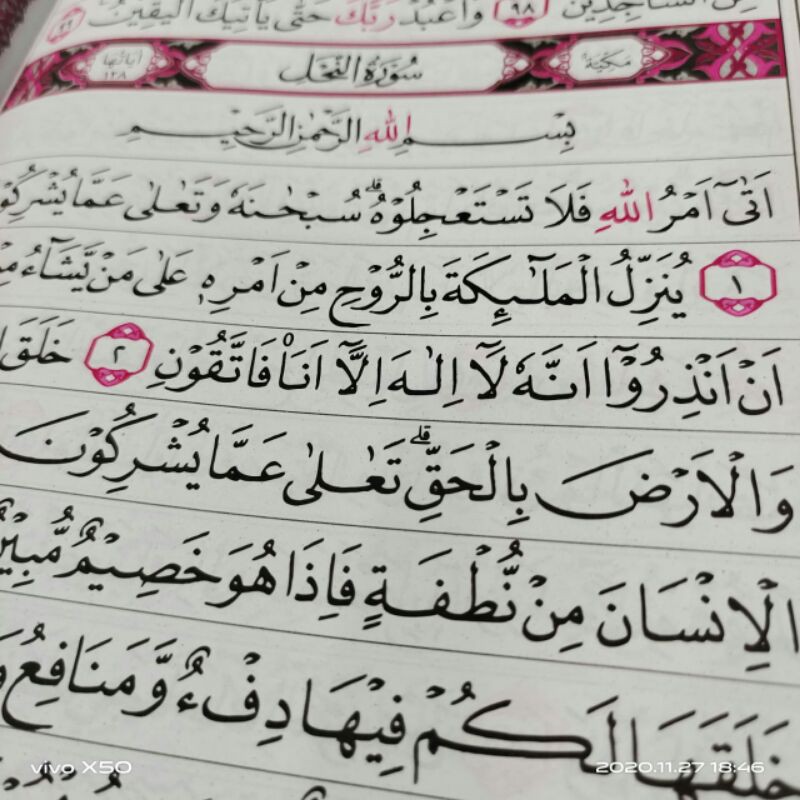 مِنَ السَّاجِدِيْنَ ٩٨ وَاعْبُدْ رَبَّكَ حَتّٰى يَأْتِيَكَ الْيَقِيْنُ ٩٩
مَكِّيَّة سُوْرَةُ النَّحْلِ اٰيَاتُهَا ١٢٨
بِسْمِ اللهِ الرَّحْمٰنِ الرَّحِيْمِ
اَتٰىٓ اَمْرُ اللهِ فَلَا تَسْتَعْجِلُوْهُ ۗ سُبْحٰنَهٗ وَتَعٰلٰى عَمَّا
١ يُنَزِّلُ الْمَلٰۤىِٕكَةَ بِالرُّوْحِ مِنْ اَمْرِهٖ عَلٰى مَنْ يَّشَاۤءُ
اَنْ اَنْذِرُوْٓا اَنَّهٗ لَآ اِلٰهَ اِلَّآ اَنَا۠ فَاتَّقُوْنِ ٢ خَلَقَ
وَالْاَرْضَ بِالْحَقِّ ۗ تَعٰلٰى عَمَّا يُشْرِكُوْنَ
الْاِنْسَانَ مِنْ نُّطْفَةٍ فَاِذَا هُوَ خَصِيْمٌ مُّبِيْنٌ
خَلَقَهَا لَكُمْ فِيْهَا دِفْءٌ وَّمَنَافِعُ
vivo X50
2020.11.27 18:46